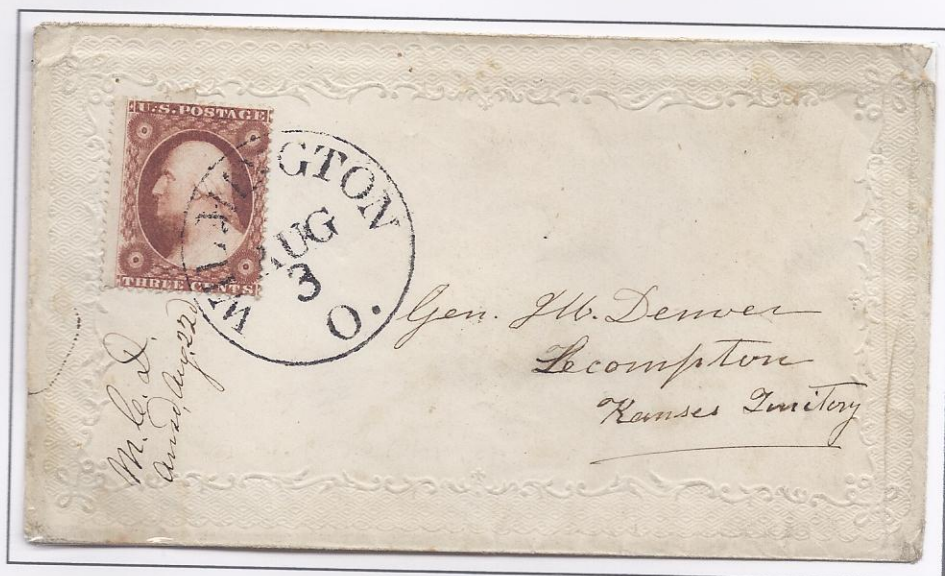 U.S. POSTAGE
THREE CENTS
WILMINGTON
AUG
3
O.
Gen. J.W. Denver
Lecompton
Kanses Territory
M. C. D.
Ansd, Aug. 22d